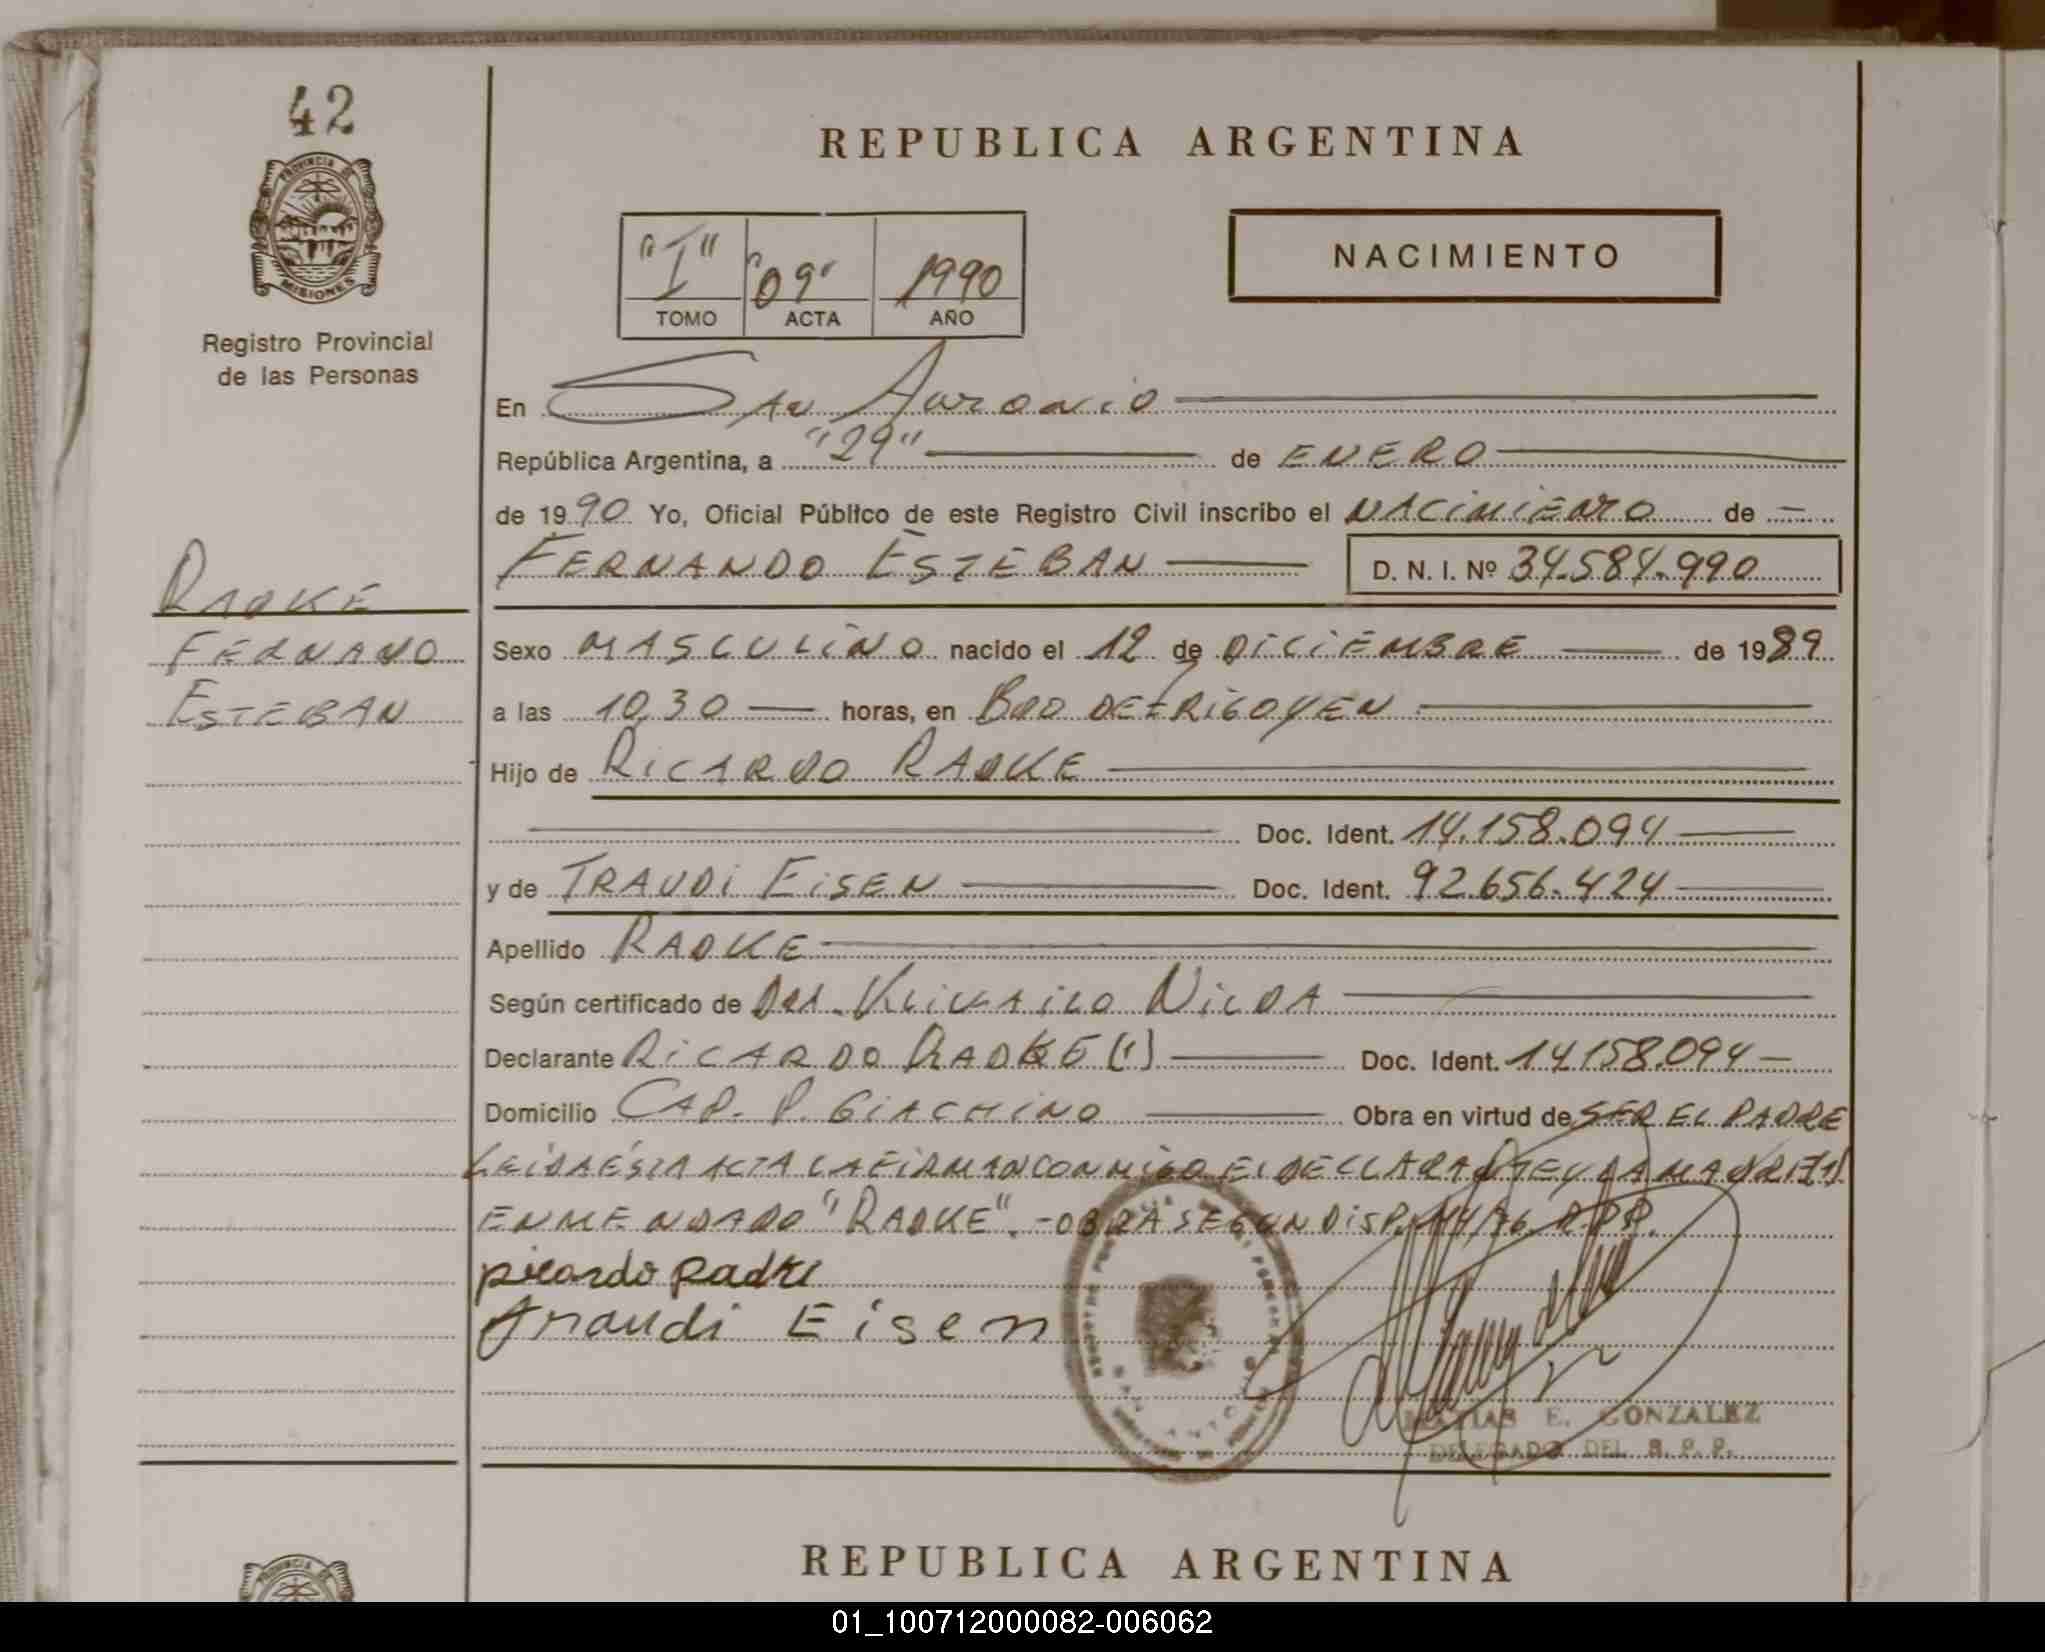 42
PROVINCIA DE
MISIONES
Registro Provincial
de las Personas
REPUBLICA ARGENTINA
NACIMIENTO
"I" "09" 1990
TOMO ACTA AÑO
En San Antonio
República Argentina, a "29" de ENERO
de 1990 Yo, Oficial Público de este Registro Civil inscribo el NACIMIENTO de —
FERNANDO ESTEBAN D. N. I. Nº 34.584.990
RADKE
FERNANDO
ESTEBAN
Sexo MASCULINO nacido el 12 de DICIEMBRE de 1989
a las 10,30 horas, en Bdo DE IRIGOYEN
Hijo de RICARDO RADKE
Doc. Ident. 14.158.094
y de TRAUDI EISEN Doc. Ident. 92.656.424
Apellido RADKE
Según certificado de DRA. NILDA
Declarante RICARDO RADKE (1) Doc. Ident. 14.158.094
Domicilio CAP. P. GIACHINO Obra en virtud de SER EL PADRE
LEIDA ESTA ACTA LA FIRMAN CONMIGO EL DECLARANTE Y LA MADRE (1)
ENMENDADO "RADKE". - OBRA SEGUN DISP. 44/76 R.P.P.
Ricardo Radke
Traudi Eisen
MATIAS E. GONZALEZ
DELEGADO DEL R. P. P.
REPUBLICA ARGENTINA
01_100712000082-006062